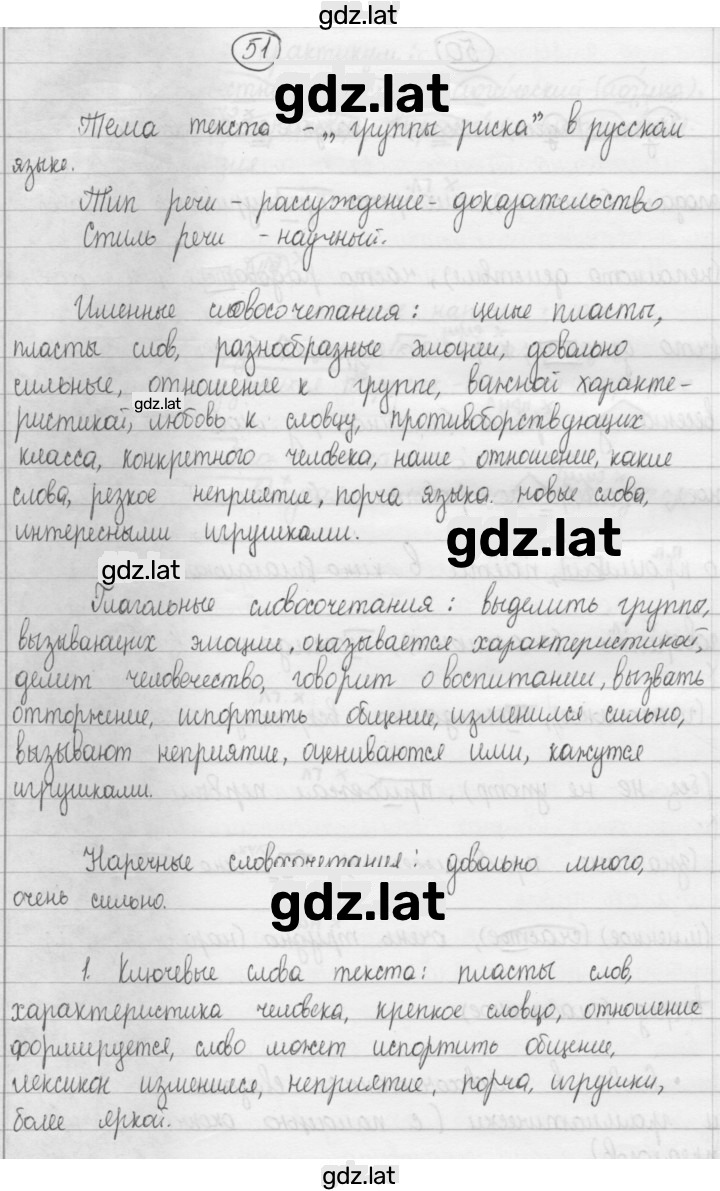 gdz.lat
51
gdz.lat
Тема текста - „группы риска" в русском
языке.
Тип речи - рассуждение - доказательство
Стиль речи - научный.
Именные словосочетания: целые пласты,
пласты слов, разнообразные эмоции, довольно
сильные, отношение к группе, важной характе-
gdz.lat
ристикой, любовь к словцу, противоборствующих
класса, конкретного человека, наше отношение, какие
слова, резкое неприятие, порча языка. новые слова,
интересными игрушками.
gdz.lat
gdz.lat
Глагольные словосочетания: выделить группы,
вызывающих эмоции, оказывается характеристикой,
делит человечество, говорит о воспитании, вызвать
отторжение, испортить общение, изменился сильно,
вызывают неприятие, оцениваются ими, кажутся
игрушками.
Наречные словосочетания: довольно много,
очень сильно.
gdz.lat
1. Ключевые слова текста: пласты слов,
характеристика человека, крепкое словцо, отношение
формируется, слово может испортить общение,
лексикон изменился, неприятие, порча, игрушки,
более яркой.
gdz.lat